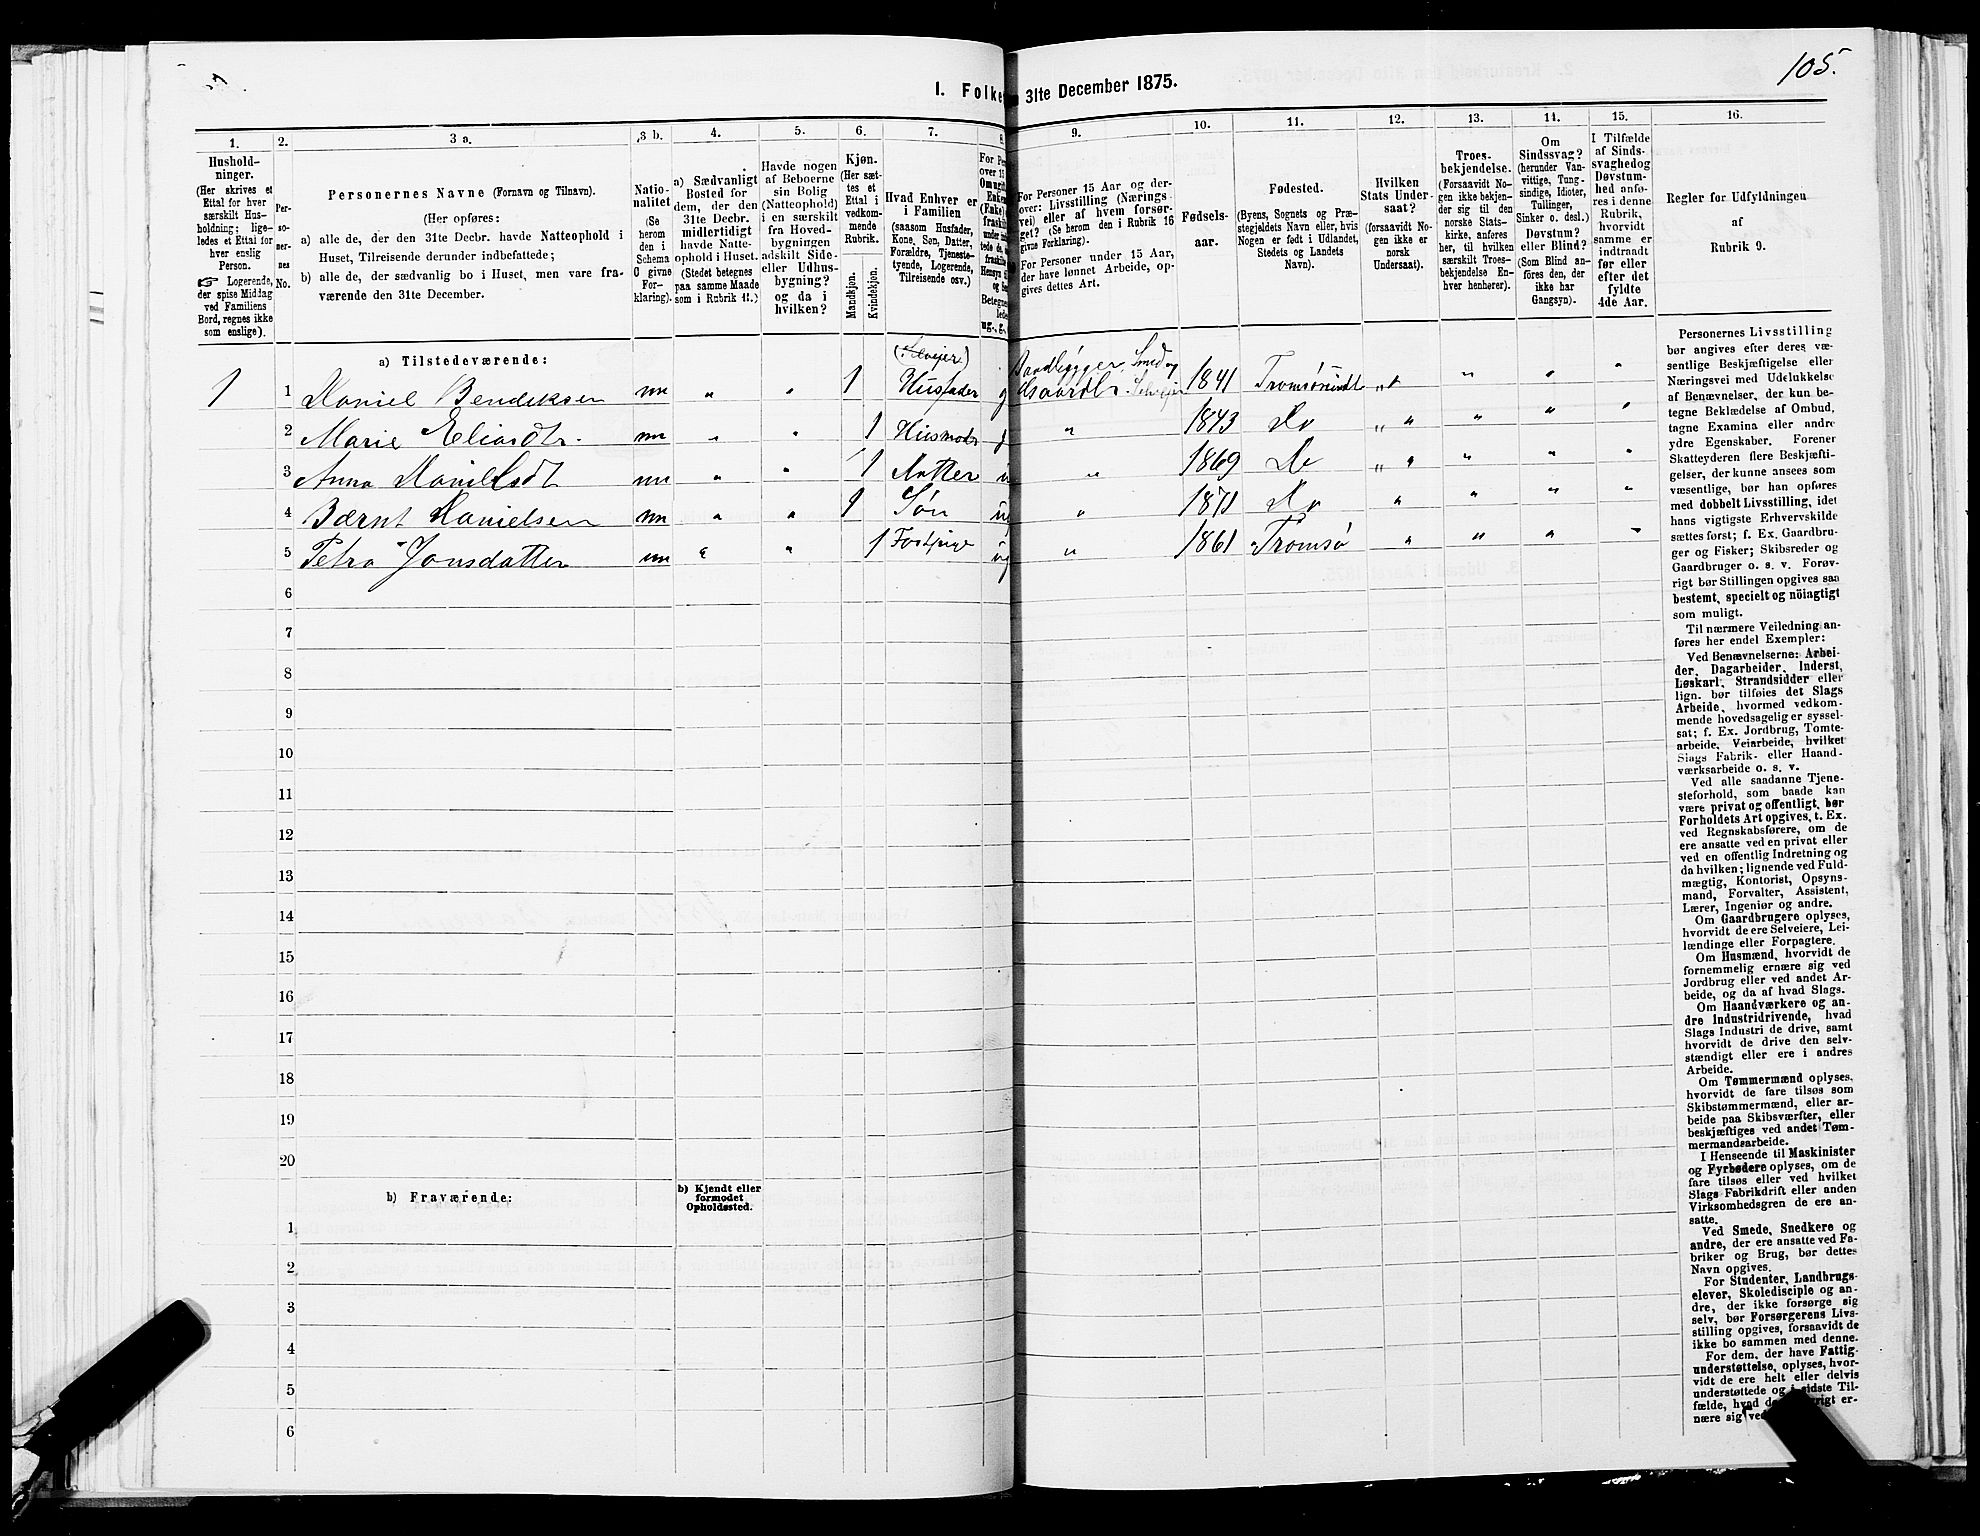 105.
I. Folke
31te December 1875.
1.
2.
3 a.
3 b.
4.
5.
6.
7.
8.
9.
10.
11.
12.
13.
14.
15.
16.
Hushold-
ninger.
(Her skrives et
Ettal for hver
særskilt Hus-
holdning; lige-
ledes et Ettal for
hver enslig
Person.
☞ Logerende,
der spise Middag
ved Familiens
Bord, regnes ikke
som enslige).
Per-
so-
ner-
nes
No.
Personernes Navne (Fornavn og Tilnavn).
(Her opføres:
a) alle de, der den 31te Decbr. havde Natteophold i
Huset, Tilreisende derunder indbefattede;
b) alle de, der sædvanlig bo i Huset, men vare fra-
værende den 31te December.
Natio-
nalitet
(Se
herom
den i
Schema
C givne
For-
klaring).
a) Sædvanligt
Bosted for
dem, der den
31te Decbr.
midlertidigt
havde Natte-
ophold i Huset.
(Stedet betegnes
paa samme Maade
som i Rubrik 11.)
Havde nogen
af Beboerne
sin Bolig
(Natteophold)
i en særskilt
fra Hoved-
bygningen
adskilt Side-
eller Udhus-
bygning?
og da i
hvilken?
Kjøn.
(Her sæt-
tes et
Ettal i
vedkom-
mende
Rubrik.
Mandkjøn.
Kvindekjøn.
Hvad Enhver er
i Familien
(saasom Husfader,
Kone, Søn, Datter,
Forældre, Tjeneste-
tyende, Logerende,
Tilreisende osv.)
For Personer 15 Aar og der-
over: Livsstilling (Nærings-
vei) eller af hvem forsør-
get? (Se herom den i Rubrik 16
givne Forklaring).
For Personer under 15 Aar,
der have lønnet Arbeide, op-
gives dettes Art.
Fødsels-
aar.
Fødested.
(Byens, Sognets og Præ-
stegjeldets Navn eller, hvis
Nogen er født i Udlandet,
Stedets og Landets
Navn).
Hvilken
Stats Under-
saat?
(forsaavidt No-
gen ikke er
norsk
Undersaat).
Troes-
bekjendelse.
(Forsaavidt No-
gen ikke bekjen-
der sig til den
norske Stats-
kirke, anføres
her, til hvilken
særskilt Troes-
bekjendelse En-
hver henhører).
Om
Sindssvag?
(herunder Van-
vittige, Tung-
sindige, Idioter,
Tullinger,
Sinker o. desl.)
Døvstum?
eller Blind?
(Som Blind an-
føres den, der
ikke har
Gangsyn).
I Tilfælde
af Sinds-
svaghed og
Døvstum-
hed anfø-
res i denne
Rubrik,
hvorvidt
samme er
indtraadt
før eller
efter det
fyldte
4de Aar.
Regler for Udfyldningen
af
Rubrik 9.
a) Tilstedeværende:
1 1 Daniel Bendiksen nn " " 1 (Selveier) Husfader g Baadbygger Smed og Gaardbr. Selveier 1841 Tromsøsundet " " " "
2 Marie Eliasdtr. nn " " 1 Husmoder g " 1843 Do " " " " "
3 Anna Danielsdt nn " " 1 Datter u " 1869 Do " " " " "
4 Bærnt Danielsen nn " " 1 Søn ug " 1871 Do " " " "
5 Petra Jonsdatter nn " " 1 Fostpige ug " 1861 Tromsø " " " "
6
7
8
9
10
11
12
13
14
15
16
17
18
19
20
b) Fraværende:
b) Kjendt eller
formodet
Opholdssted.
1
2
3
4
5
6
Personernes Livsstilling
bør angives efter deres væ-
sentlige Beskjæftigelse eller
Næringsvei med Udelukkelse
af Benævnelser, der kun be-
tegne Beklædelse af Ombud,
tagne Examina eller andre
ydre Egenskaber. Forener
Skatteyderen flere Beskjæfti-
gelser, der kunne ansees som
væsentlige, bør han opføres
med dobbelt Livsstilling, idet
hans vigtigste Erhvervskilde
sættes først; f. Ex. Gaardbru-
ger og Fisker; Skibsreder og
Gaardbruger o. s. v. Forøv-
rigt bør Stillingen opgives saa
bestemt, specielt og nöiagtigt
som muligt.
Til nærmere Veiledning an-
føres her endel Exempler:
Ved Benævnelserne: Arbei-
der, Dagarbeider, Inderst,
Løskarl, Strandsidder eller
lign. bør tilføies det Slags
Arbeide, hvormed vedkom-
mende hovedsagelig er syssel-
sat; f. Ex. Jordbrug, Tomte-
arbeide, Veiarbeide, hvilket
Slags Fabrik- eller Haand-
værksarbeide o. s. v.
Ved alle saadanne Tjene-
steforhold, som baade kan
være privat og offentligt, bør
Forholdets Art opgives, t. Ex.
ved Regnskabsførere, om de
ere ansatte ved en privat eller
ved en offentlig Indretning og
da hvilken; lignende ved Fuld-
mægtig, Kontorist, Opsyns-
mand, Forvalter, Assistent,
Lærer, Ingeniør og andre.
Om Gaardbrugere oplyses,
hvorvidt de ere Selveiere, Lei-
lændinge eller Forpagtere.
Om Husmænd, hvorvidt de
fornemmelig ernære sig ved
Jordbrug eller ved andet Ar-
beide, og da af hvad Slags.
Om Haandværkere og an-
dre Industridrivende, hvad
Slags Industri de drive, samt
hvorvidt de drive den selv-
stændigt eller ere i andres
Arbeide.
Om Tømmermænd oplyses,
hvorvidt de fare tilsøs som
Skibstømmermænd, eller ar-
beide paa Skibsværfter, eller
beskjæftiges ved andet Tøm-
mermandsarbeide.
I Henseende til Maskinister
og Fyrbødere oplyses, om de
fare tilsøs eller ved hvilket
Slags Fabrikdrift eller anden
Virksomhedsgren de ere an-
satte.
Ved Smede, Snedkere og
andre, der ere ansatte ved Fa-
briker og Brug, bør dettes
Navn opgives.
For Studenter, Landbrugs-
elever, Skoledisciple og an-
dre, der ikke forsørge sig
selv, bør Forsørgerens Livs-
stilling opgives, forsaavidt de
ikke bo sammen med denne.
For dem, der have Fattig-
understøttelse, oplyses, hvor-
vidt de ere helt eller delvis
understøttede og i sidste Til-
fælde, hvad de rigt er-
nære sig ved